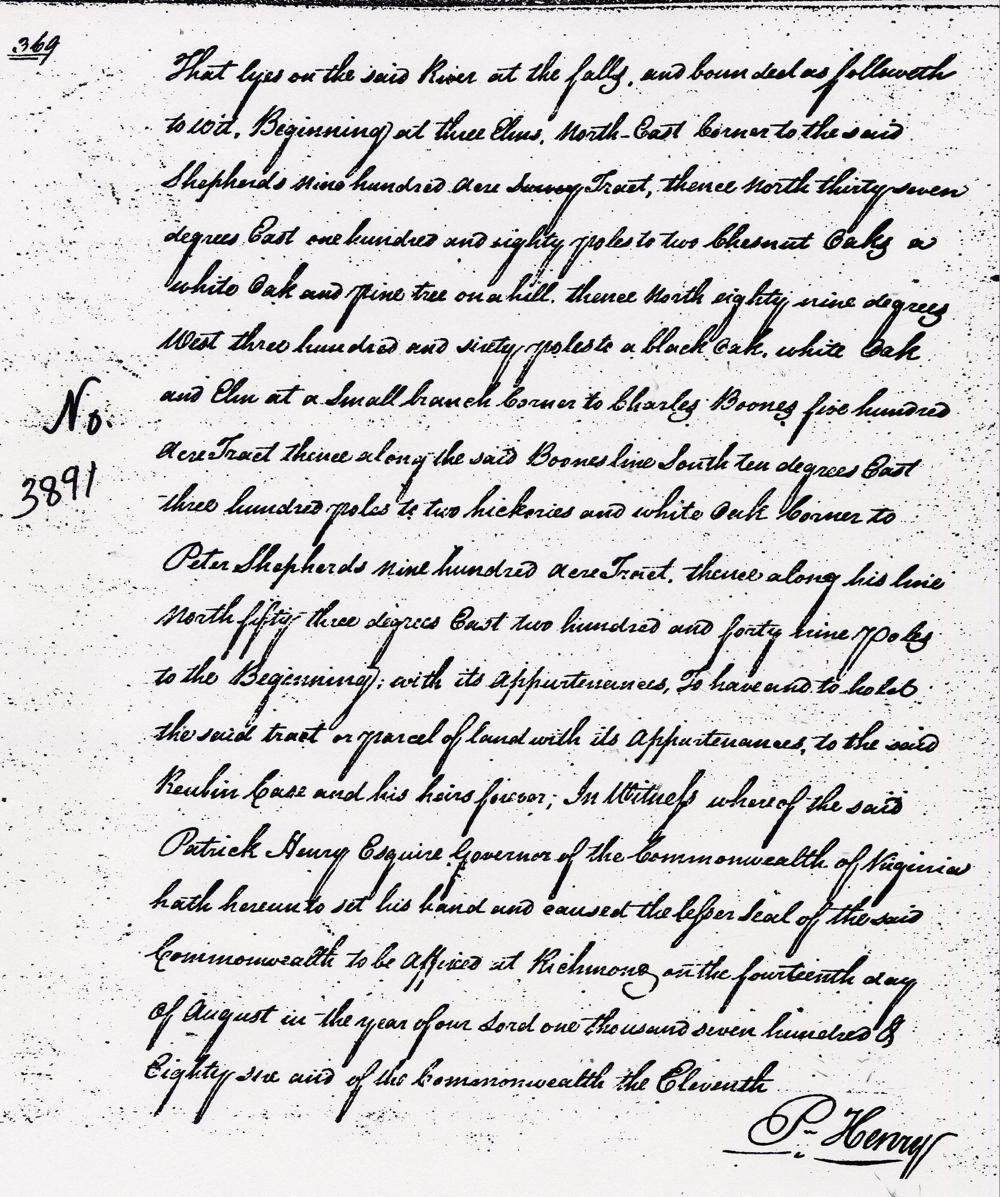 369
That lyes on the said River at the falls, and bounded as followeth
to wit, Beginning at three Elms, North-East Corner to the said
Shepherds nine hundred Acre Survey Tract, thence North thirty seven
degrees East one hundred and eighty poles to two Chesnut Oaks a
white Oak and pine tree on a hill. thence North eighty nine degrees
West three hundred and sixty poles to a black Oak, white Oak
and Elm at a Small branch Corner to Charles Boones five hundred
No.
Acre Tract thence along the said Boones line South ten degrees East
3891
three hundred poles to two hickories and white Oak Corner to
Peter Shepherds nine hundred Acre Tract, thence along his line
North fifty three degrees East two hundred and forty nine Poles
to the Beginning; with its Appurtenances, To have and to hold
the said tract or parcel of land with its Appurtenances, to the said
Reubin Case and his heirs forever; In Witness whereof the said
Patrick Henry Esquire Governor of the Commonwealth of Virginia
hath hereunto set his hand and caused the lesser Seal of the said
Commonwealth to be Affixed at Richmond on the fourteenth day
of August in the year of our Lord one thousand seven hundred &
Eighty six and of the Commonwealth the Eleventh
P. Henry